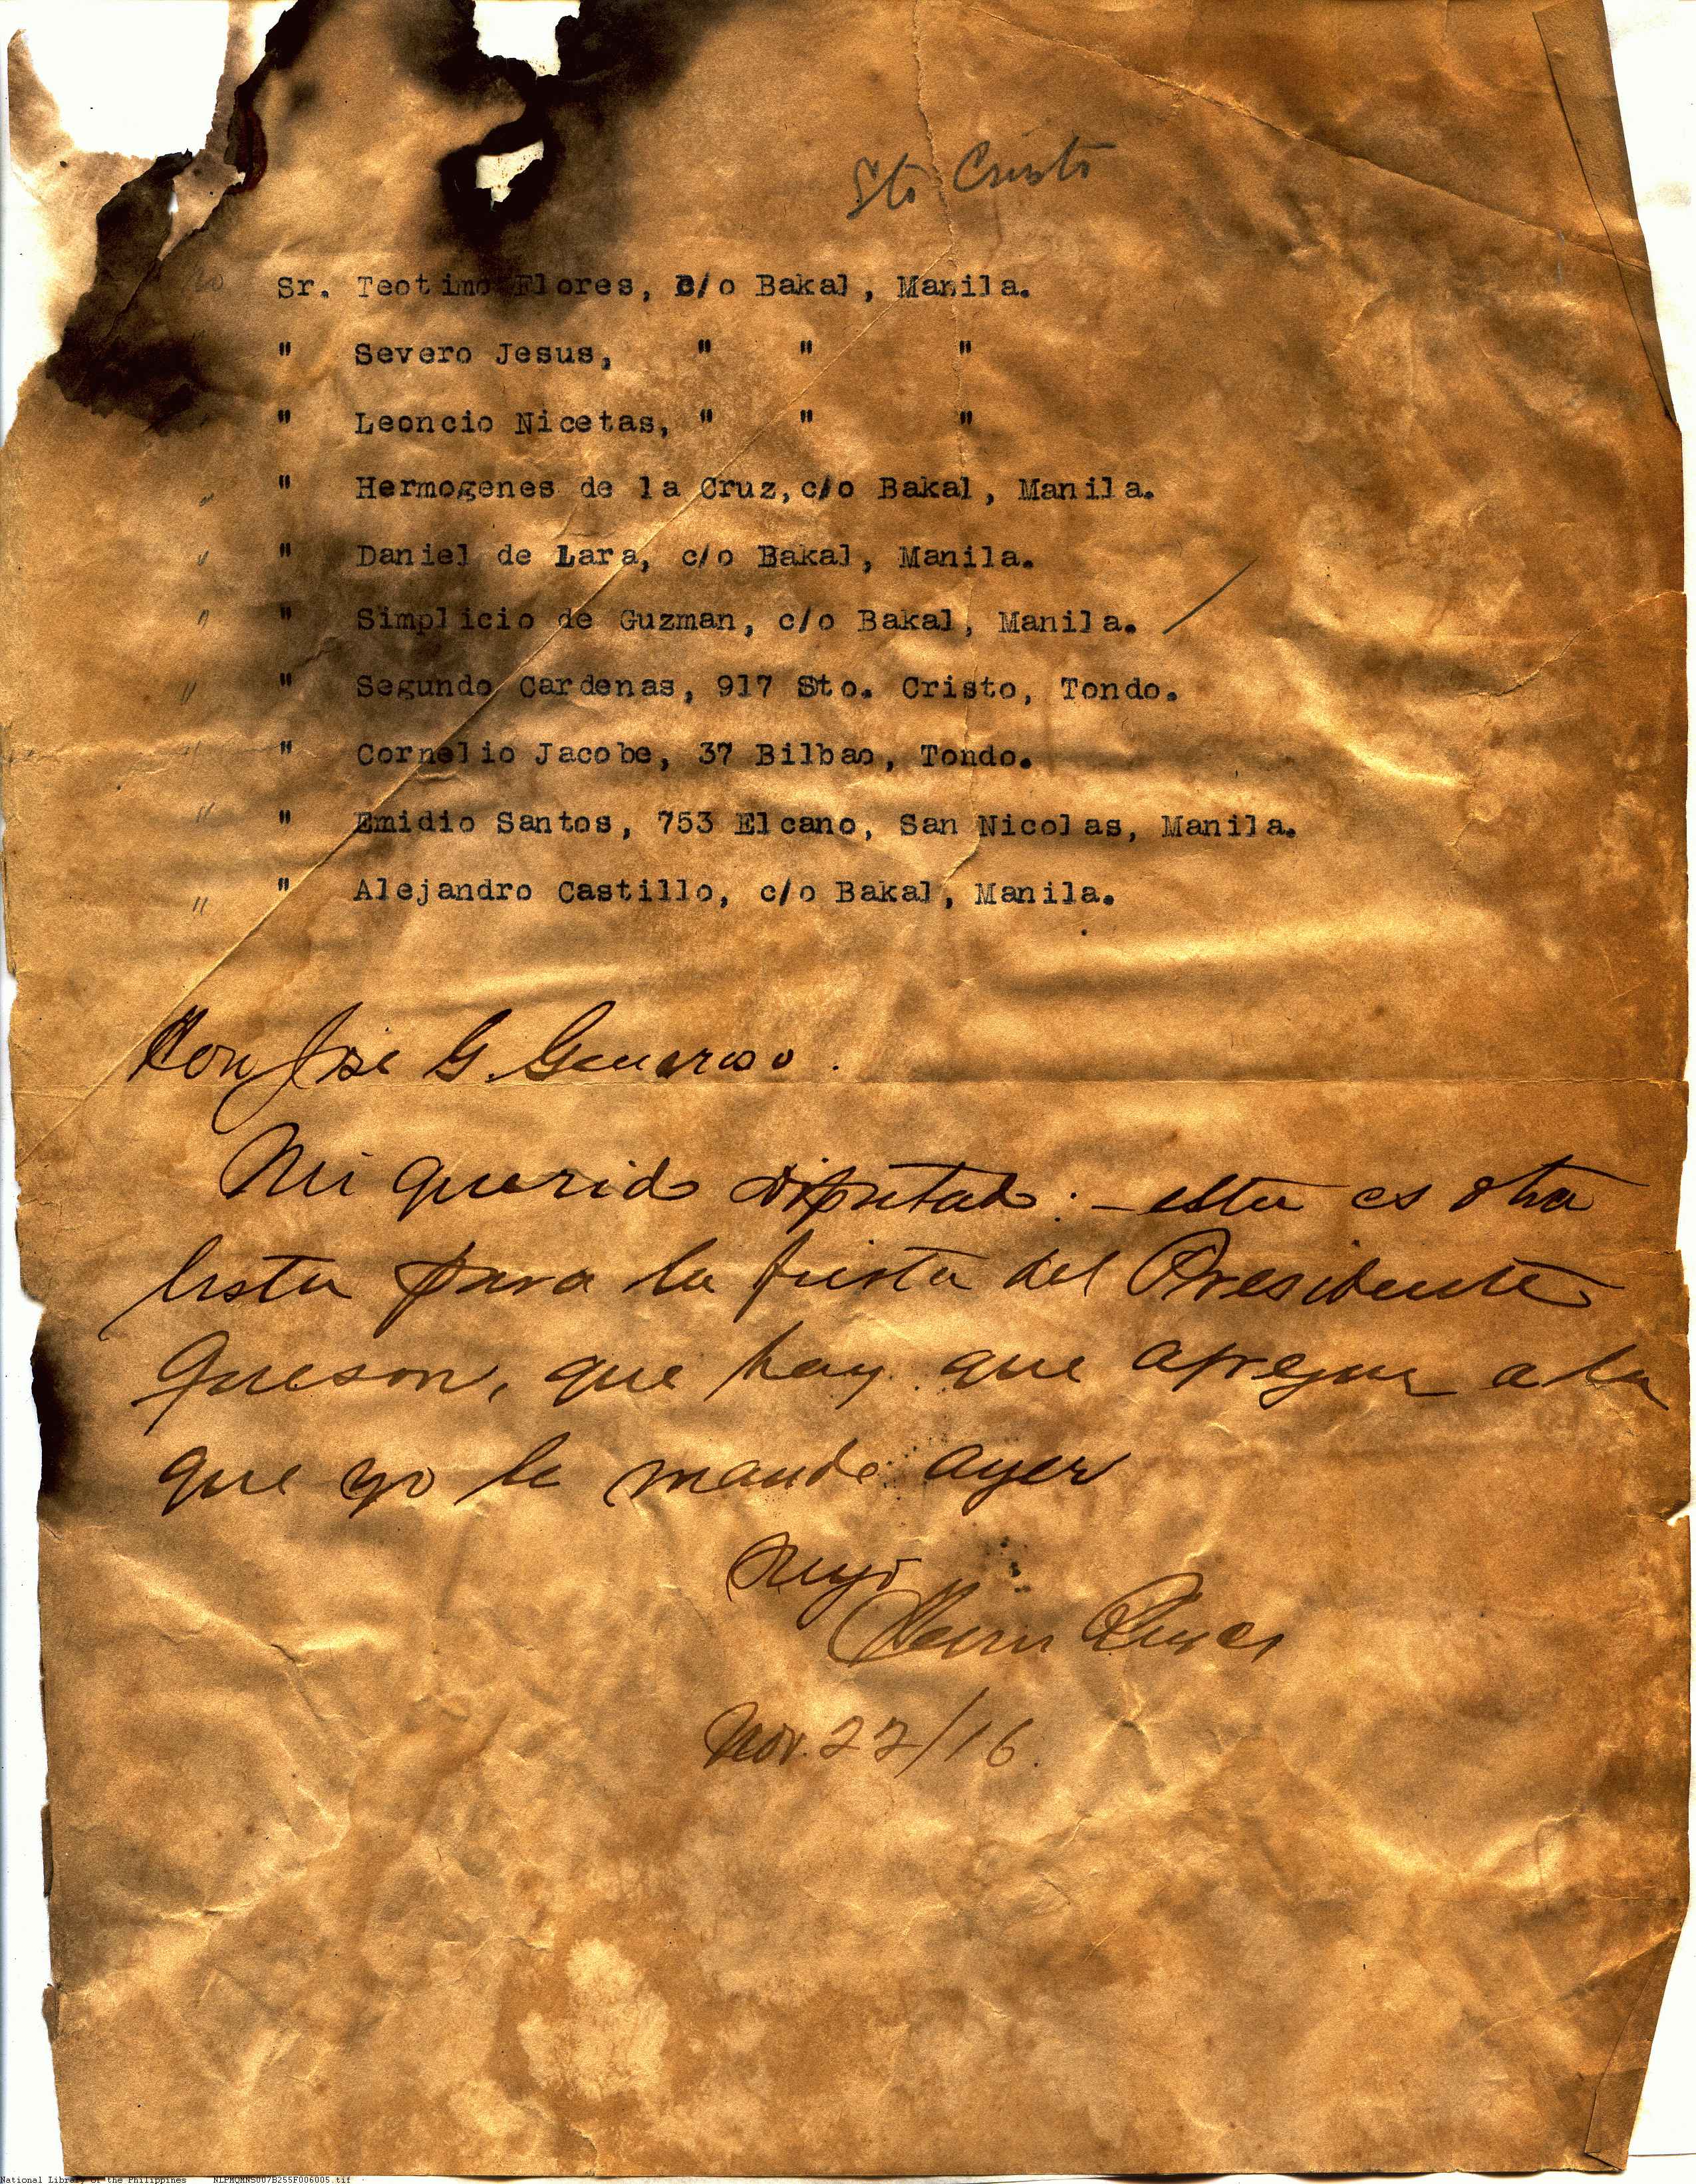 Sto Cristo
Sr. Teotimo Flores, c/o Bakal, Manila.
" Severo Jesus, " " "
" Leoncio Nicetas, " " "
" " Hermogenes de la Cruz, c/o Bakal, Manila.
" " Daniel de Lara, c/o Bakal, Manila.
" " Simplicio de Guzman, c/o Bakal, Manila. /
" " Segundo Cardenas, 917 Sto. Cristo, Tondo.
" " Cornelio Jacobe, 37 Bilbao, Tondo.
" " Emidio Santos, 753 Elcano, San Nicolas, Manila.
" " Alejandro Castillo, c/o Bakal, Manila.
Hon Jose G. Generoso.
Mi querido diputado: - esta es otra
lista para la fiesta del Presidente
Queson, que hay que agregar a la
que yo le mande ayer
Suyo
Nov. 22/16.
National Library of the Philippines NLPMQMNS007B255F006005.tif